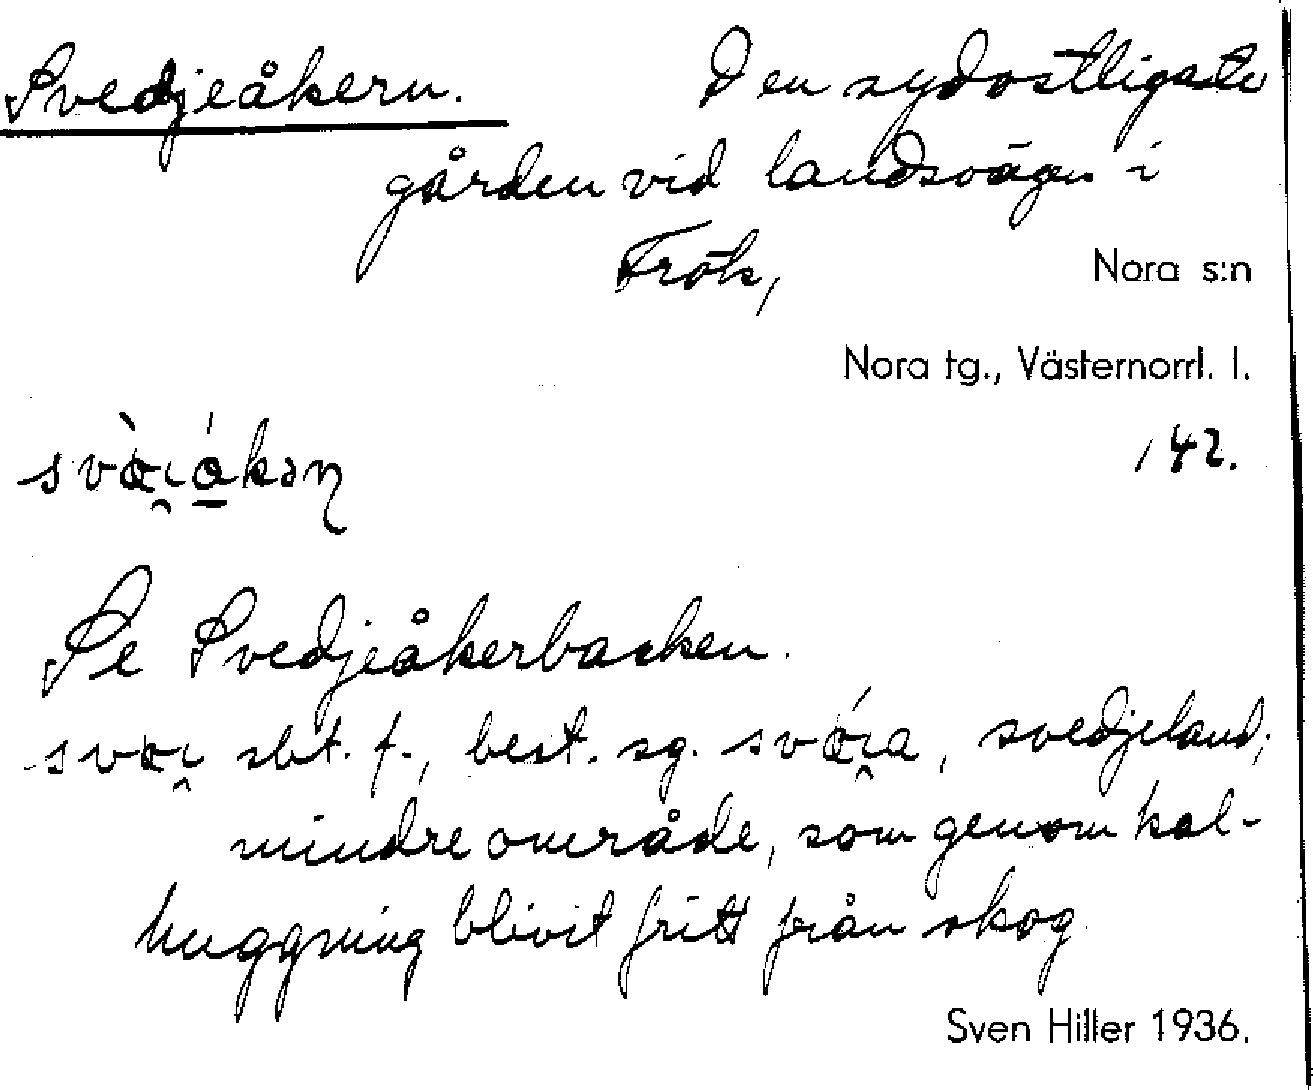 Svedjeåkern. Den sydostligste
gården vid landsvägen i
Frök, Nora s:n
Nora tg., Västernorrl. l.
142.
Se Svedjeåkerbacken.
sbt. f., best. sg. svedjeland;
mindre område, som genom kal-
huggning blivit fritt från skog
Sven Hiller 1936.